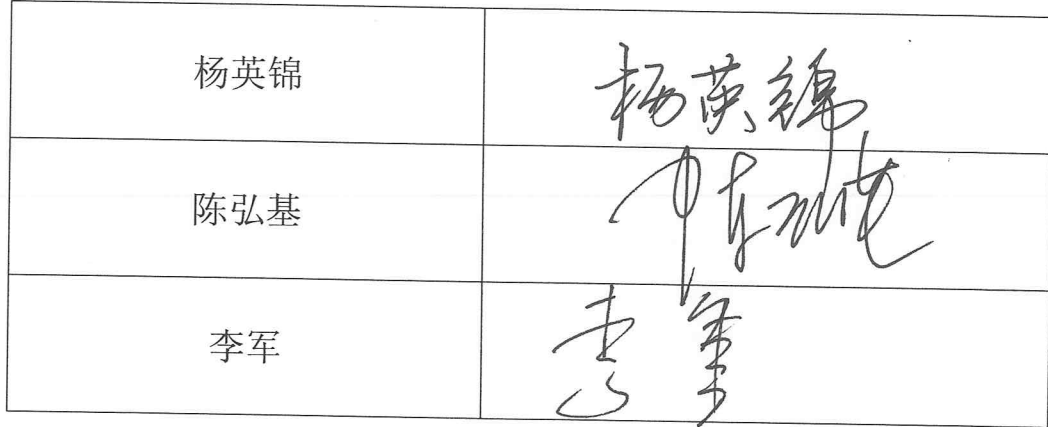 杨英锦 杨英锦
陈弘基
李军 李军